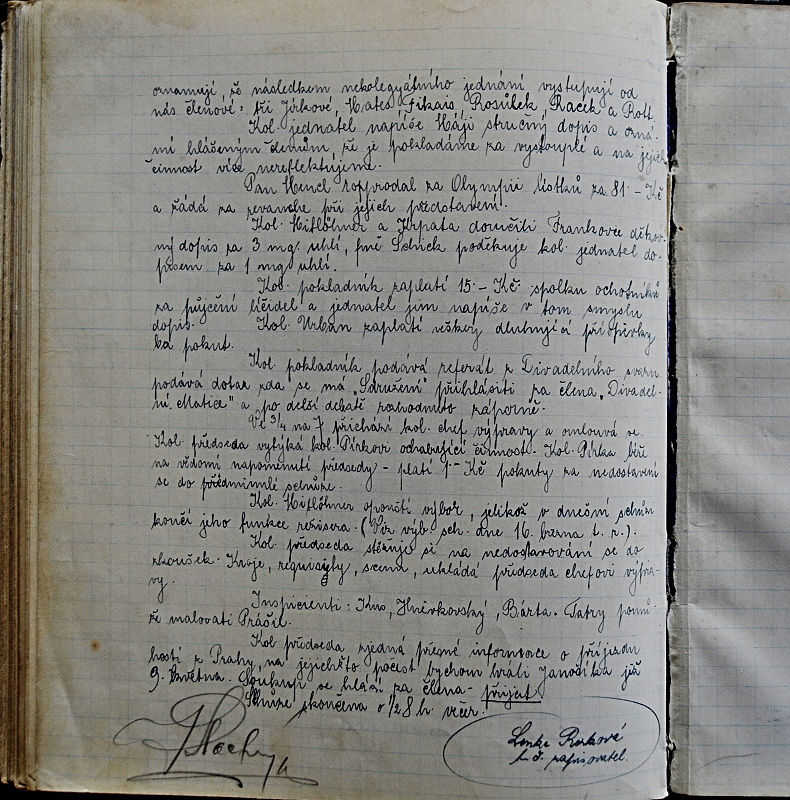 oznamují, že následkem nekolegyálního jednání vystupují od
nás členové: tři Jirkové, Mates, Fikais, Rosůlek, Racek a Rott.
Kol. jednatel napíše Háji stručný dopis a ozná-
mí hlášeným členům, že je pokládáme za vystouplé a na jejich
činnost více nereflektujeme.
Pan Hencl rozprodal za Olympii lístků za 81.- Kč
a žádá za revanche při jejich představení.
Kol. Hiflöhner a Krpata doručiti Frankovce děkov-
ný dopis za 3 mg. uhlí, fmě Sedníck poděkuje kol. jednatel do-
pisem za 1 mg uhlí.
Kol. pokladník zaplatí 15.- Kč. spolku ochotníků
za půjčení líčidel a jednatel jim napíše v tom smyslu
dopis. Kol. Urban zaplatí veškery dlužnjící příspěvky
bez pokut.
Kol. pokladník podává referát z Divadelního svazu,
podává dotaz zda se má „Sdružení" přihlásiti za člena „Divadel-
ní Matice" a po delší debatě rozhodnuto záporně.
Ve 3/4 na 7 přichází kol. chef výpravy a omlouvá se.
Kol. předseda vytýká kol. Pírkovi ochabující činnost. Kol. Pírka béře
na vědomí napomenutí předsedy - platí 1.- Kč pokuty za nedostavení
se do předminulé schůze.
Kol. Hiflöhner opouští výbor, jelikož v dnešní schůzi
končí jeho funkce režisera. (Viz výb. sch. dne 16. března t. r.).
Kol. předseda stěžuje si na nedostavování se do
zkoušek. Kroje, requisity, scenu, ukládá předseda chefovi výpra-
vy.
Inspicienti: Kns, Hněvkovský, Bárta. Tatry pomů-
že malovati Prášil.
Kol předseda zjedná přesné informace o příjezdu
hostí z Prahy, na jejichžto počest bychom hráli Janošíka již
9. května. Soukup se hlásí za člena - přijat.
Schůze skončena o 1/2 8 h. večer.
Lenka Rorková
t. č. zapisovatel.